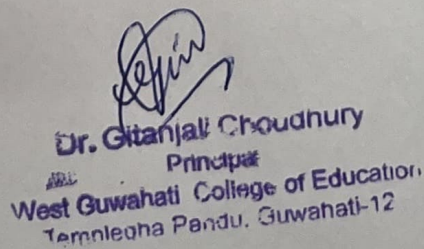 Dr. Gitanjali Choudhury
Principal
West Guwahati College of Education
Pandu, Guwahati-12